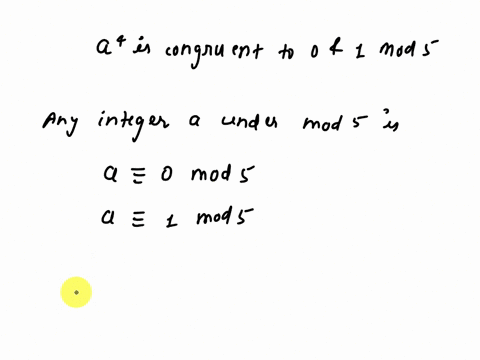 a⁴ is congruent to 0 & 1 mod 5
Any integer a under mod 5 is
a ≡ 0 mod 5
a ≡ 1 mod 5